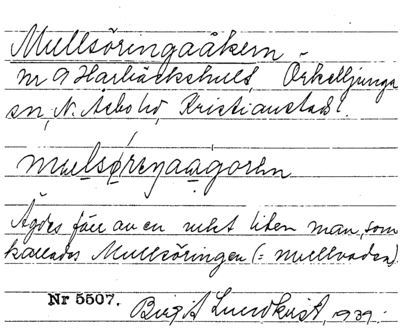 Mullsöringaåkern
nr 9 Harbäckshult, Örkelljunga
sn, N. Åsbo hd, Kristianstads l.
Ägdes förr av en mkt liten man, som
kallades Mullsöringen (= mullvaden)
Nr 5507. Birgit Lundkvist, 1939.